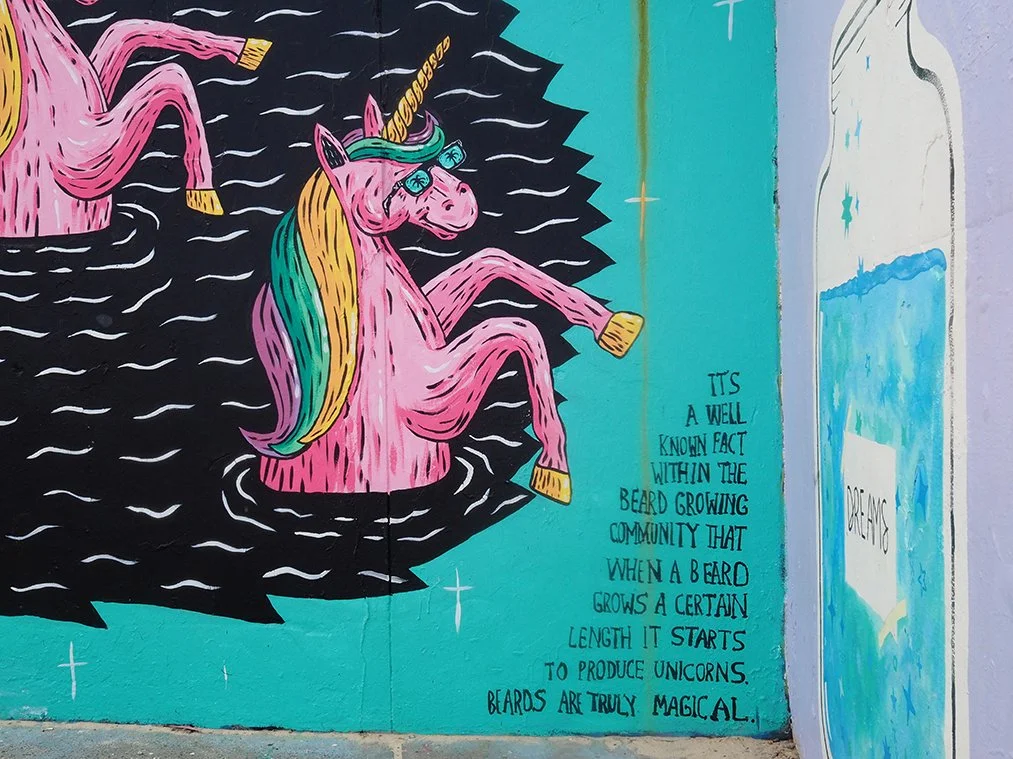 IT'S
A WELL
KNOWN FACT
WITHIN THE
BEARD GROWING
COMMUNITY THAT
WHEN A BEARD
GROWS A CERTAIN
LENGTH IT STARTS
TO PRODUCE UNICORNS.
BEARDS ARE TRULY MAGICAL.
DREAMS